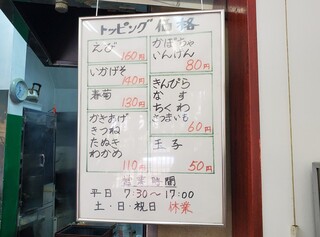 トッピング 価格
えび 160円
いかげそ 140円
春菊 130円
かきあげ
きつね
たぬき
わかめ 110円
かぼちゃ
いんげん 80円
きんぴら
なす
ちくわ
さつまいも 60円
玉子 50円
営業時間
平日 7:30〜17:00
土・日・祝日 休業